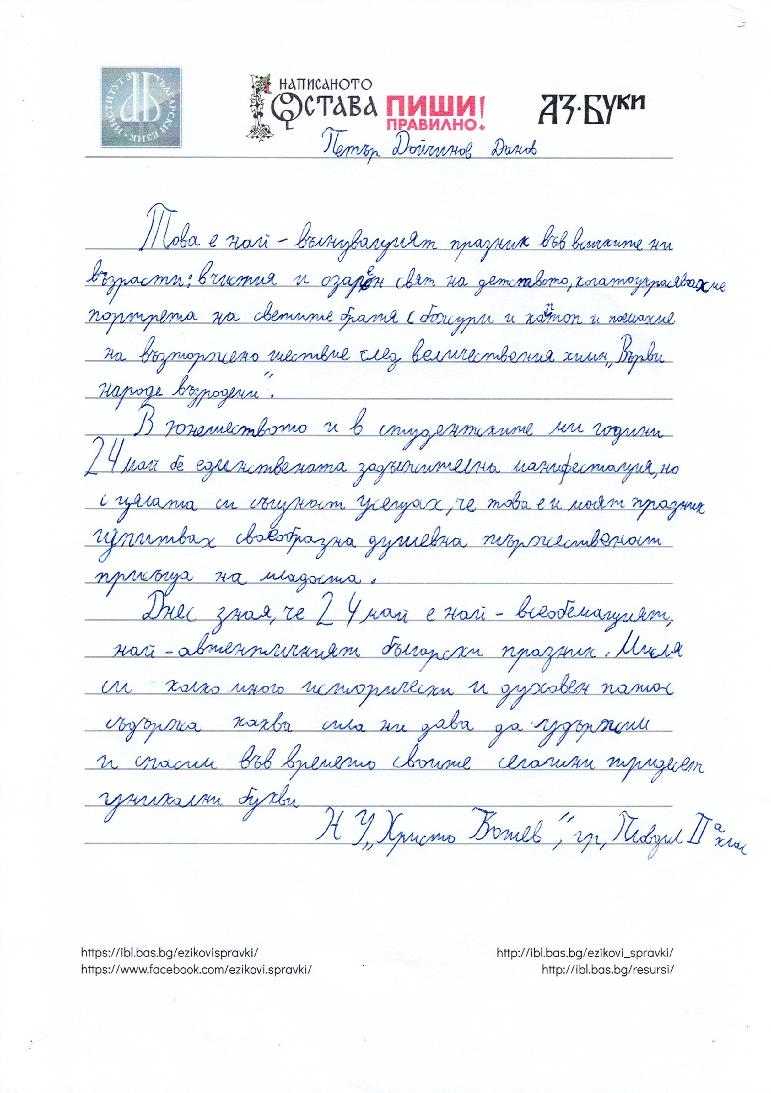 ИНСТИТУТ ЗА БЪЛГАРСКИ ЕЗИК
НАПИСАНОТО
ОСТАВА
ПИШИ!
ПРАВИЛНО.
АЗ·БУКИ
Петър Дойчинов Динов
Това е най - вълнуващият празник във всичките ни
възрасти: в чистия и озарен свят на детството, когато украсявахме
портрета на светите братя с божури и картоп и поемахме
на възторжено шествие след величествения химн „Върви
народе възродени".
В юношеството и в студентските ми години
24 май бе единствената задължителна манифестация, но
с цялата си същност усещах, че това е и моят празник
изпитвах своеобразна душевна тържественост
присъща на младоста.
Днес зная, че 24 май е най - всеобемащият,
най - автентичният български празник. Мисля
си колко много исторически и духовен патос
съдържа каква сила ни дава да удържим
и спасим във времето своите сегашни тридесет
уникални букви
Н У „Христо Ботев", гр, Пловдив II а клас
https://ibl.bas.bg/ezikovispravki/
https://www.facebook.com/ezikovi.spravki/
http://ibl.bas.bg/ezikovi_spravki/
http://ibl.bas.bg/resursi/